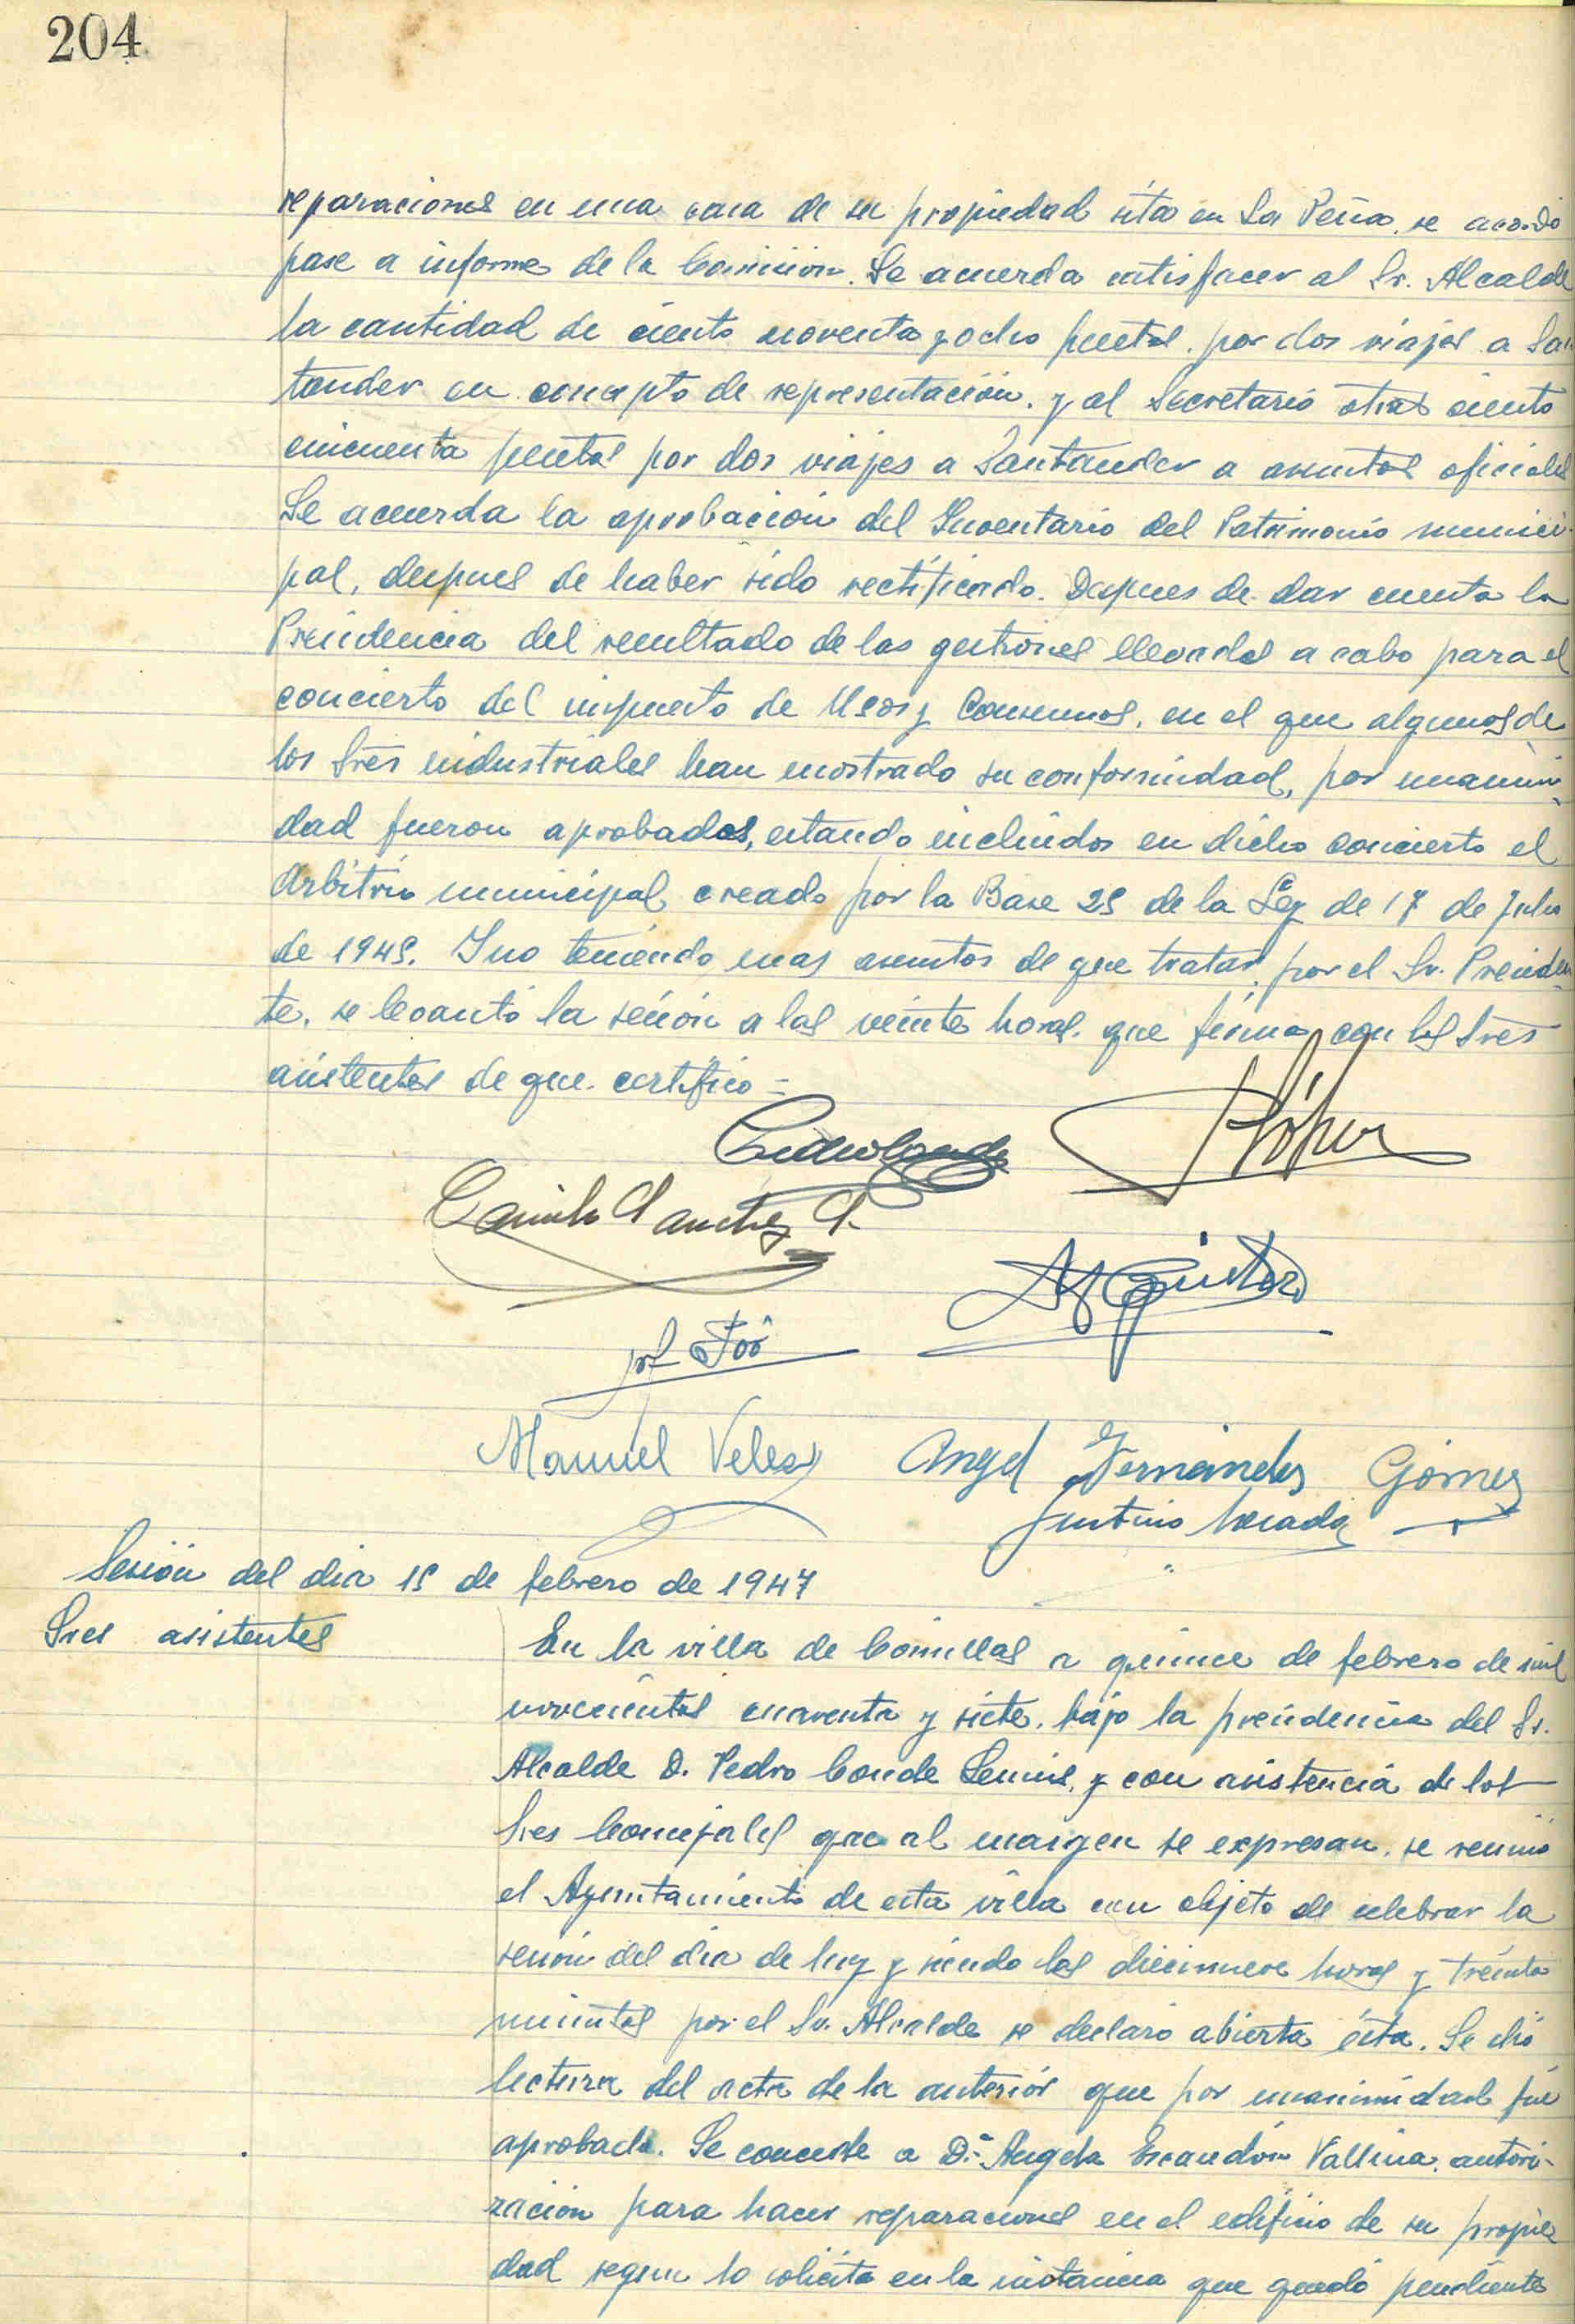 204
reparaciones en una casa de su propiedad sita en La Peña, se acordó
pase a informe de la Comisión. Se acuerda satisfacer al Sr. Alcalde
la cantidad de ciento noventa y ocho pesetas, por dos viajes a San
tander en concepto de representación, y al Secretario otras ciento
cincuenta pesetas por dos viajes a Santander a asuntos oficiales
Se acuerda la aprobación del Inventario del Patrimonio munici-
pal, despues de haber sido rectificado. Despues de dar cuenta la
Presidencia del resultado de las gestiones llevadas a cabo para el
concierto del impuesto de Usos y Consumos, en el que algunos de
los Sres industriales han mostrado su conformidad, por unanimi-
dad fueron aprobados, estando incluidos en dicho concierto el
Arbitrio municipal creado por la Base 25 de la Ley de 17 de Julio
de 1945. Y no teniendo mas asuntos de que tratar, por el Sr. Presiden-
te, se levantó la sesión a las veinte horas, que firma con los Sres
asistentes de que certifico =
Pedro Conde López
Camilo Sanchez
Manuel Velez Angel Fernández Gómez
Sesión del dia 15 de febrero de 1947
Sres asistentes
En la villa de Comillas a quince de febrero de mil
novecientos cuarenta y siete, bajo la presidencia del Sr.
Alcalde D. Pedro Conde y con asistencia de los
Sres Concejales que al margen se expresan, se reunió
el Ayuntamiento de esta villa con objeto de celebrar la
sesión del dia de hoy y siendo las diecinueve horas y treinta
minutos por el Sr. Alcalde se declaró abierta ésta. Se dió
lectura del acta de la anterior que por unanimidad fué
aprobada. Se concede a D.ª Angela Escandón Vallina, autori-
zación para hacer reparaciones en el edificio de su propie
dad segun lo solicita en la instancia que quedó pendiente